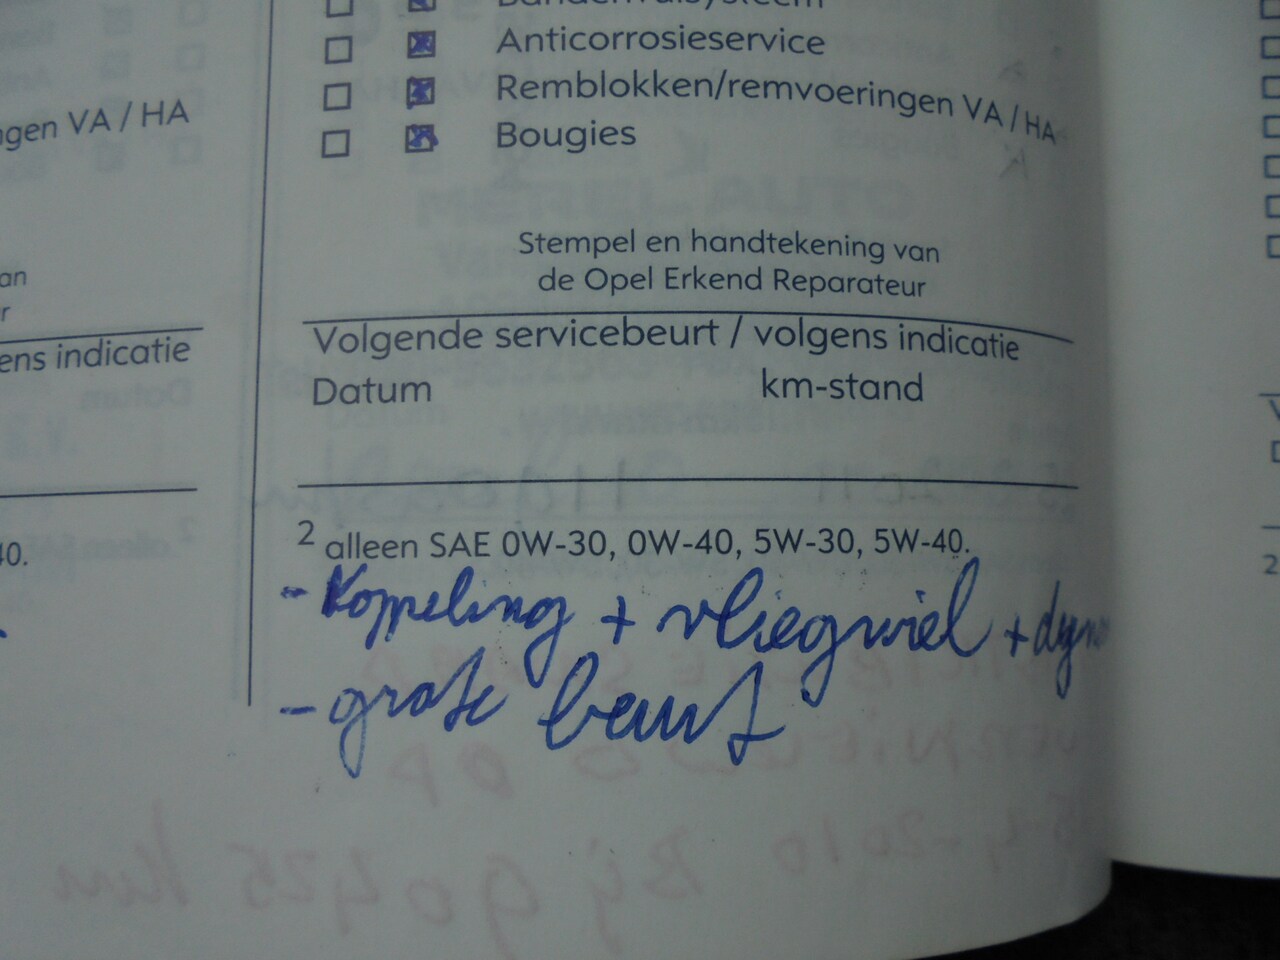 Anticorrosieservice
Remblokken/remvoeringen VA / HA
Bougies
gen VA / HA
Stempel en handtekening van
de Opel Erkend Reparateur
ens indicatie
Volgende servicebeurt / volgens indicatie
Datum km-stand
40.
2 alleen SAE 0W-30, 0W-40, 5W-30, 5W-40.
- Koppeling + vliegwiel +
- grote beurt